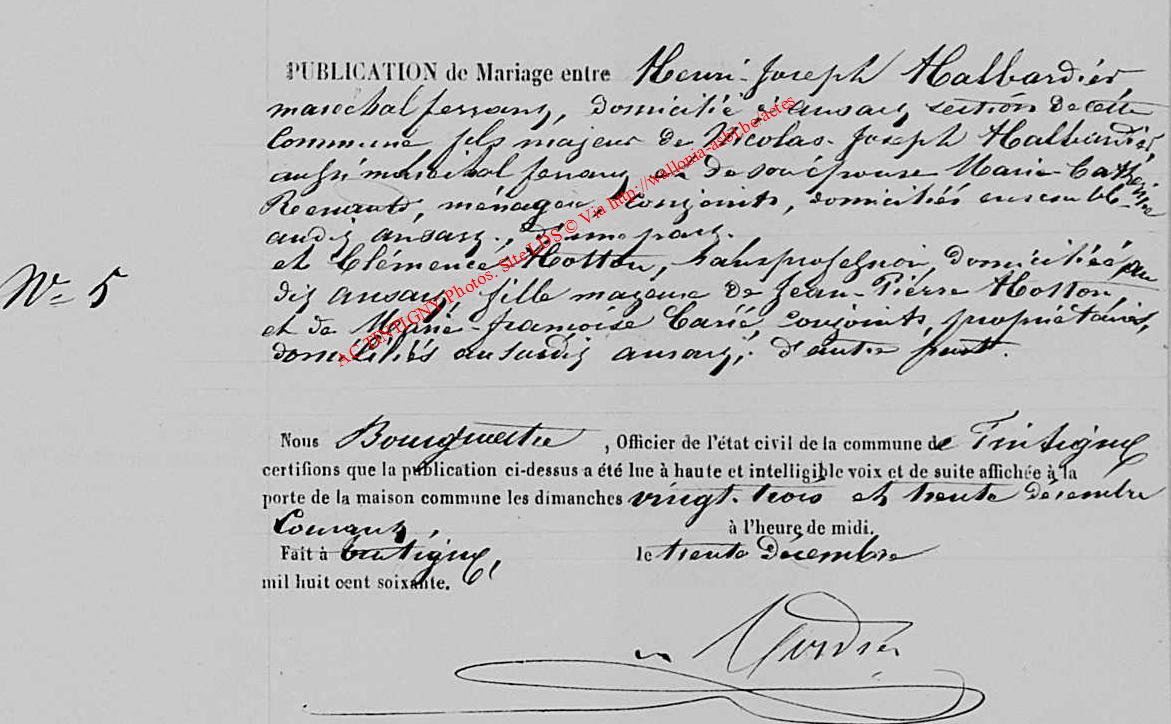 PUBLICATION de Mariage entre Henri-Joseph Halbardier
maréchal ferrant, domicilié à ansart, section de cette
Commune fils majeur de Nicolas-Joseph Halbardier,
aussi maréchal ferrant et de son épouse Marie-Catherine
ménagère, conjoints, domiciliés ensemble
audit ansart, d'une part.
et Clémence Hotton, sans profession domiciliée au
dit ansart, fille majeure de Jean-Pierre Hotton
et de Marie-françoise conjoints, propriétaires,
domiciliés au susdit ansart, d'autre part.
N° 5
Nous Bourgmestre , Officier de l'état civil de la commune de Tintigny
certifions que la publication ci-dessus a été lue à haute et intelligible voix et de suite affichée à la
porte de la maison commune les dimanches vingt-trois et trente décembre
Courant, à l'heure de midi.
Fait à tintigny, le trente Décembre
mil huit cent soixante.
AC TINTIGNY Photos. Site LDS © Via http://wallonia-asbl.be/actes